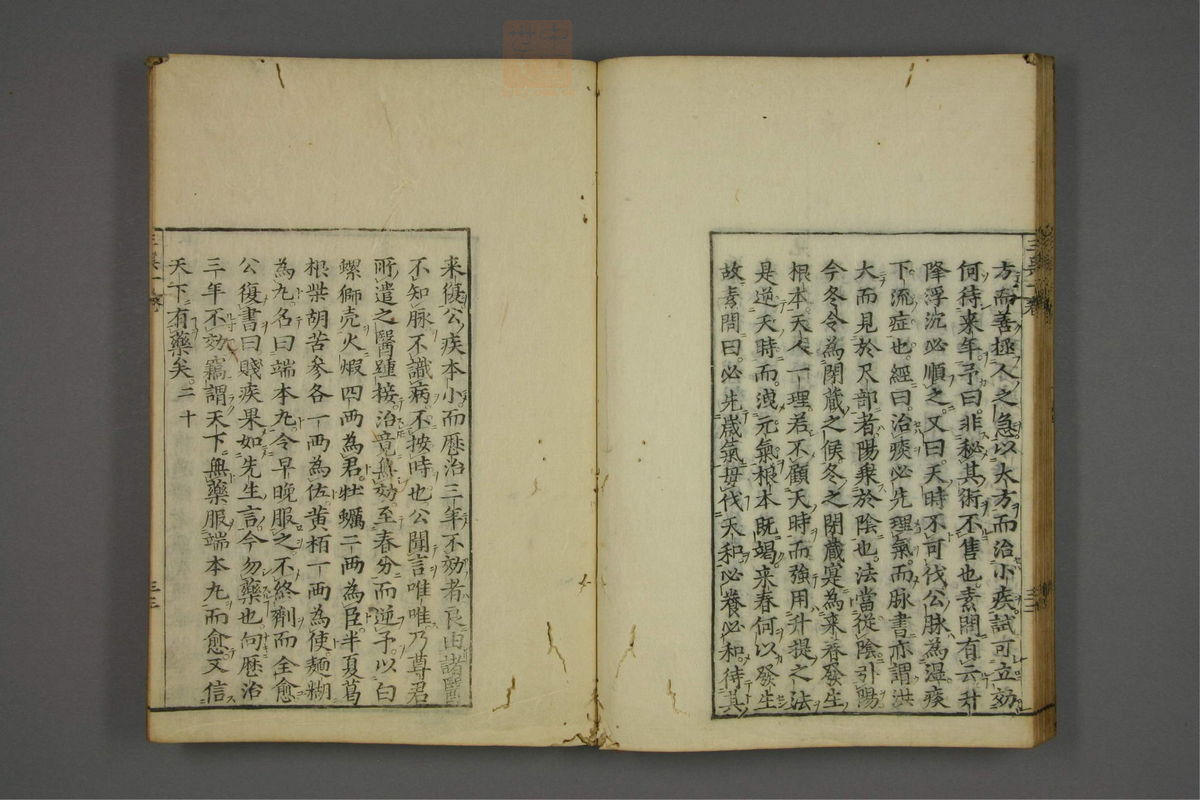 方而善極人之急以大方而治小疾試可立効
何待来年予曰非秘其術不售也素問有云升
降浮沉必順之又曰天時不可伐公脉為濕痰
下流症也經曰治痰必先理氣而脉書亦謂洪
大而見於尺部者陽乗於陰也法當從陰引陽
今冬令為閉藏之候冬之閉藏寔為来春發生
根本天人一理若不顧天時而強用升提之法
是逆天時而洩元氣根本既竭来春何以發生
故素問曰必先歳氣毋伐天和必養必和待其
来復公疾本小而歴治三年不効者良由諸醫
不知脉不識病不按時也公聞言唯唯乃尊君
所遣之醫踵接治竟無効至春分而逆予以白
螺螄壳火煅四两為君牡蠣二两為臣半夏葛
根柴胡苦參各一两為佐黄栢一两為使麺糊
為丸名曰端本丸令早晩服之不終劑而全愈
公復書曰賤疾果如先生言今勿藥也向歴治
三年不効竊謂天下無藥服端本丸而愈又信
天下有藥矣二十